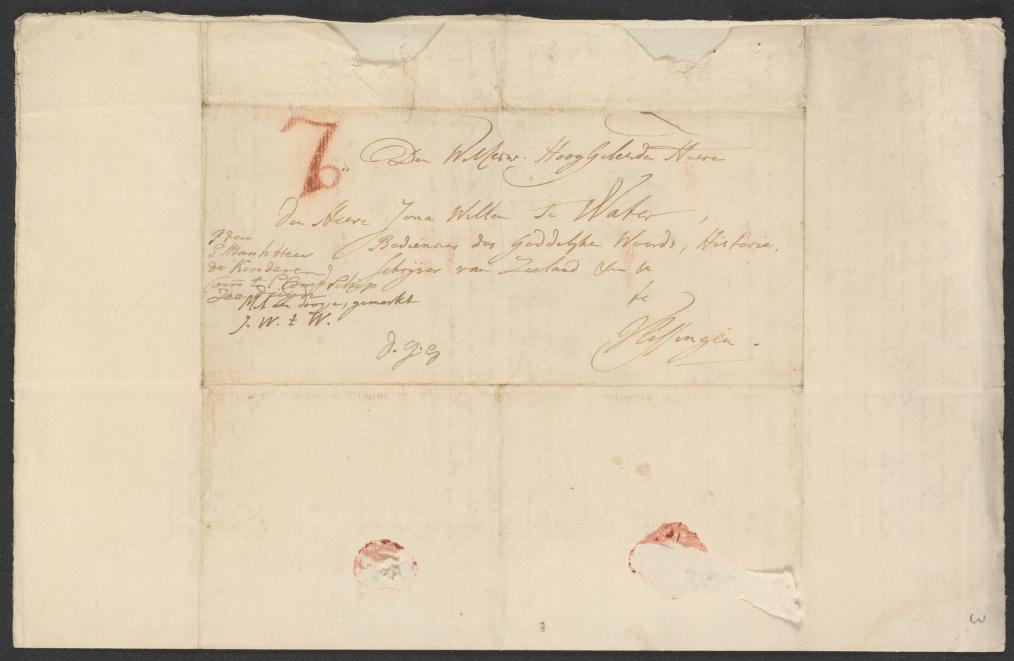 7
Den WelEerw. HoogGeleerden Heere
den Heere Jona Willem Te Water,
Bedienaar des Goddelyke Woords, Historie,
schrijver van Zeeland &
te
Vlissingen.
P den
E Manh Heer
de Kinderen
Com t Comp Schip
Met een doosje, gemerkt
J. W. t W.
d. G. G
3